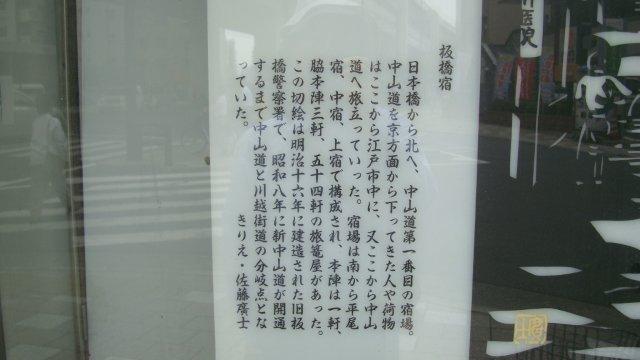 板橋宿
日本橋から北へ、中山道第一番目の宿場。
中山道を京方面から下ってきた人や荷物
はここから江戸市中に、又ここから中山
道へ旅立っていった。宿場は南から平尾
宿、中宿、上宿で構成され、本陣は一軒、
脇本陣三軒、五十四軒の旅篭屋があった。
この切絵は明治十六年に建造された旧板
橋警察署で、昭和八年に新中山道が開通
するまで中山道と川越街道の分岐点とな
っていた。
きりえ・佐藤廣士